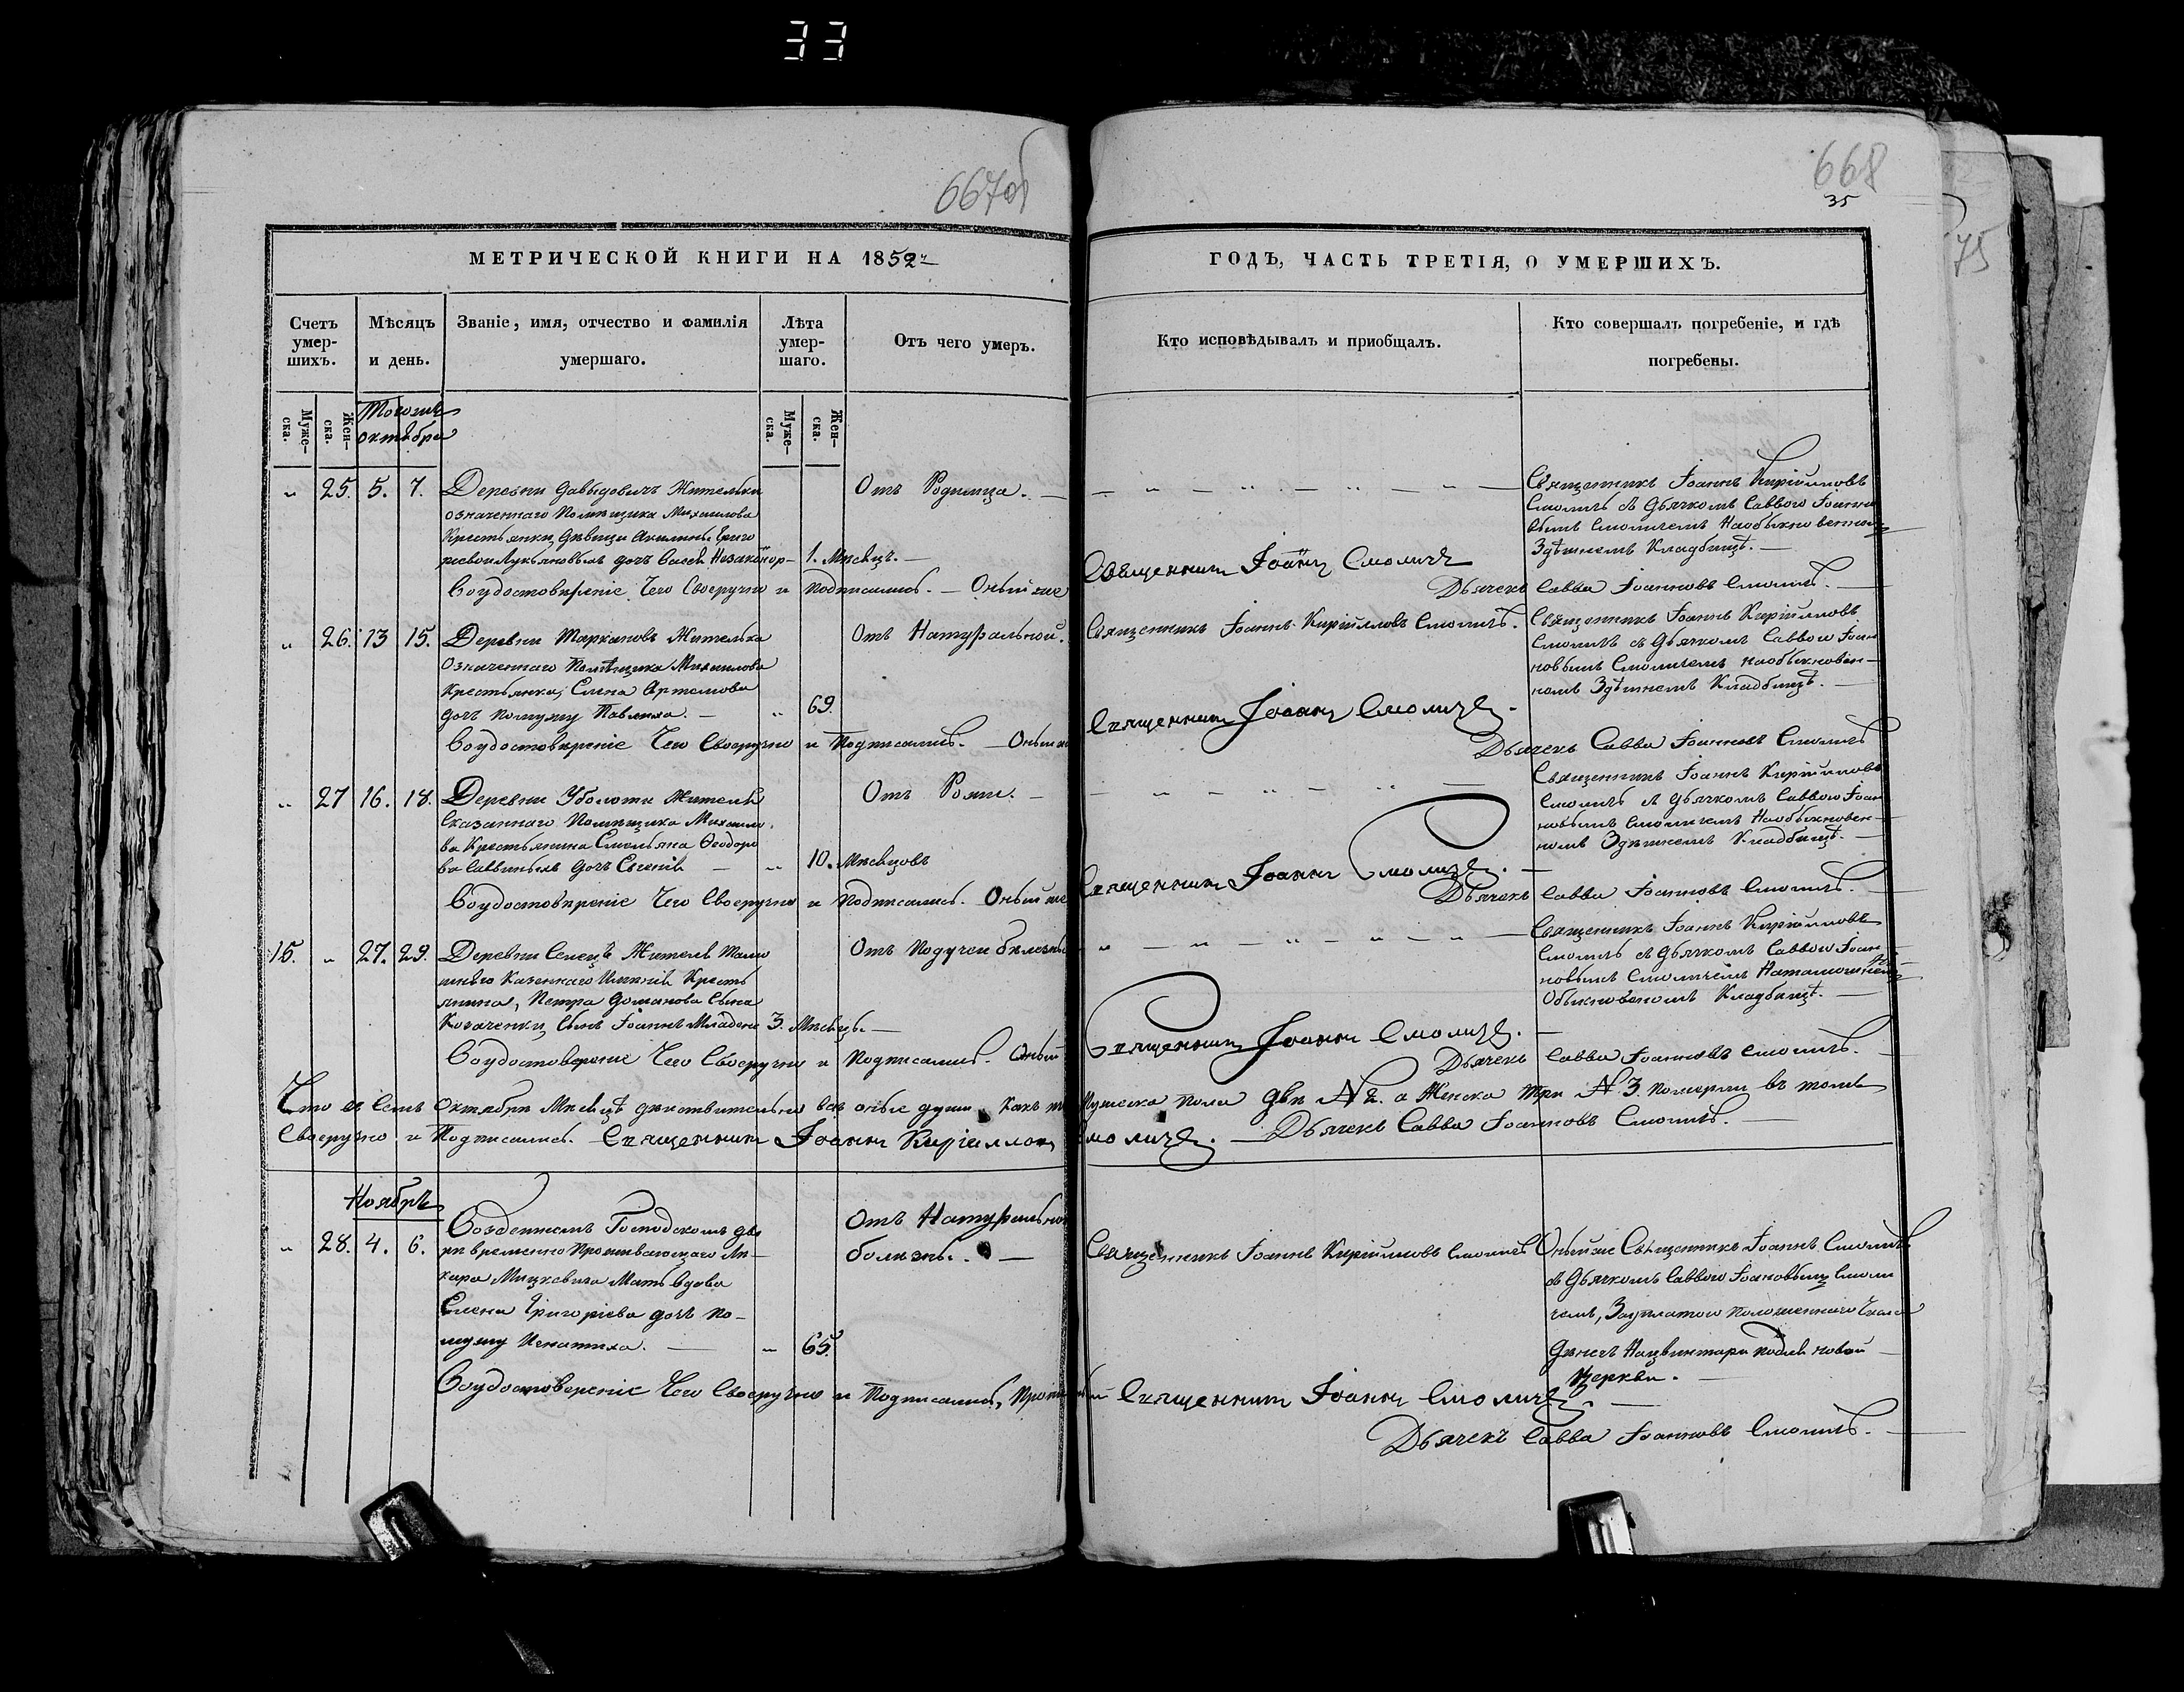 33
667об
668
35
75
МЕТРИЧЕСКОЙ КНИГИ НА 1852 ГОДЪ, ЧАСТЬ ТРЕТІЯ, О УМЕРШИХЪ.
Счетъ умер-
шихъ.
Мѣсяцъ
и день.
Званіе, имя, отчество и фамилія
умершаго.
Лѣта
умер-
шаго.
Отъ чего умеръ.
Кто исповѣдывалъ и приобщалъ.
Кто совершалъ погребеніе, и гдѣ
погребены.
Муже-
ска.
Жен-
ска.
Муже-
ска.
Жен-
ска.
Октября
25. 5. 7.
Деревни Давыдовичъ Жительки
означеннаго Помѣщика Михаилова
Крестьянки, Дѣвицы Акилины Григо
ріевой дочь
1. Мѣсяцъ.
Отъ Родимца.
Священникъ Іоаннъ Кирилловъ
Смоличъ съ Дьячкомъ Саввою Іоанно
вымъ Смоличемъ Наобыкновенномъ
Здѣшнемъ Кладбищѣ.
Воудостовѣреніе Чего Своеручно и Подписались. Оный же Священникъ Іоаннъ Смоличъ
Дьячекъ Савва Іоанновъ Смоличъ.
26. 13 15.
Деревни Жителька
Означеннаго Помѣщика Михаилова
Крестьянка, Елена Артемова
дочь помужу Павлиха.
69.
Отъ Натуральной.
Священникъ Іоаннъ Кирилловъ Смоличъ.
Священникъ Іоаннъ Кирилловъ
Смоличъ съ Дьячкомъ Саввою Іоан
новымъ Смоличемъ наобыкновен-
номъ Здѣшнемъ Кладбищѣ.
Воудостовѣреніе Чего Своеручно и Подписались. Священникъ Іоаннъ Смоличъ.
Дьячекъ Савва Іоанновъ Смоличъ
27 16. 18.
Деревни Уболоти
Сказаннаго Помѣщика Михаило
ва Крестьянина Ѳеодоро
ва дочь Евгенія
10. Мѣсяцовъ
Священникъ Іоаннъ Кирилловъ
Смоличъ съ Дьячкомъ Саввою Іоан
новымъ Смоличемъ Наобыкновен-
номъ Здѣшнемъ Кладбищѣ.
Воудостовѣреніе Чего Своеручно и Подписались. Оный же Священникъ Іоаннъ Смоличъ.
Дьячекъ Савва Іоанновъ Смоличъ.
15. 27. 29.
Деревни Селецъ
Казеннаго Имѣнія Кресть
янина, Петра Романова Сына
сынъ Іоаннъ Младенецъ
3. Мѣсяцъ.
Священникъ Іоаннъ Кирилловъ
Смоличъ съ Дьячкомъ Саввою Іоан
новымъ Смоличемъ Натамошнемъ
Обыкновеномъ Кладбищѣ.
Воудостовереніе Чего Своеручно и Подписались. Оный Священникъ Іоаннъ Смоличъ.
Дьячекъ Савва Іоанновъ Смоличъ.
Что въ Семъ Октябрѣ Мѣсяцѣ дѣйствительно всѣ оные души Мужеска пола двѣ № 2. а Женска три № 3. померли въ томъ
Своеручно и Подписались. Священникъ Іоаннъ Кирилловъ Смоличъ. Дьячекъ Савва Іоанновъ Смоличъ.
Ноябрь
28. 4. 6.
Воздешнемъ Господскомъ дво
рѣ временно Проживающаго Ле-
каря Мицкевича Мать Вдова
Елена Григоріева дочь по-
мужу Игнатиха.
65.
Отъ Натуральной
болѣзни.
Священникъ Іоаннъ Кирилловъ Смоличъ
Оный же Священникъ Іоаннъ Смоличъ
съ Дьячкомъ Саввою Іоановымъ Смоли
чемъ,
новой
Церкви.
Воудостовереніе Чего Своеручно и Подписались, Священникъ Іоаннъ Смоличъ.
Дьячекъ Савва Іоанновъ Смоличъ.